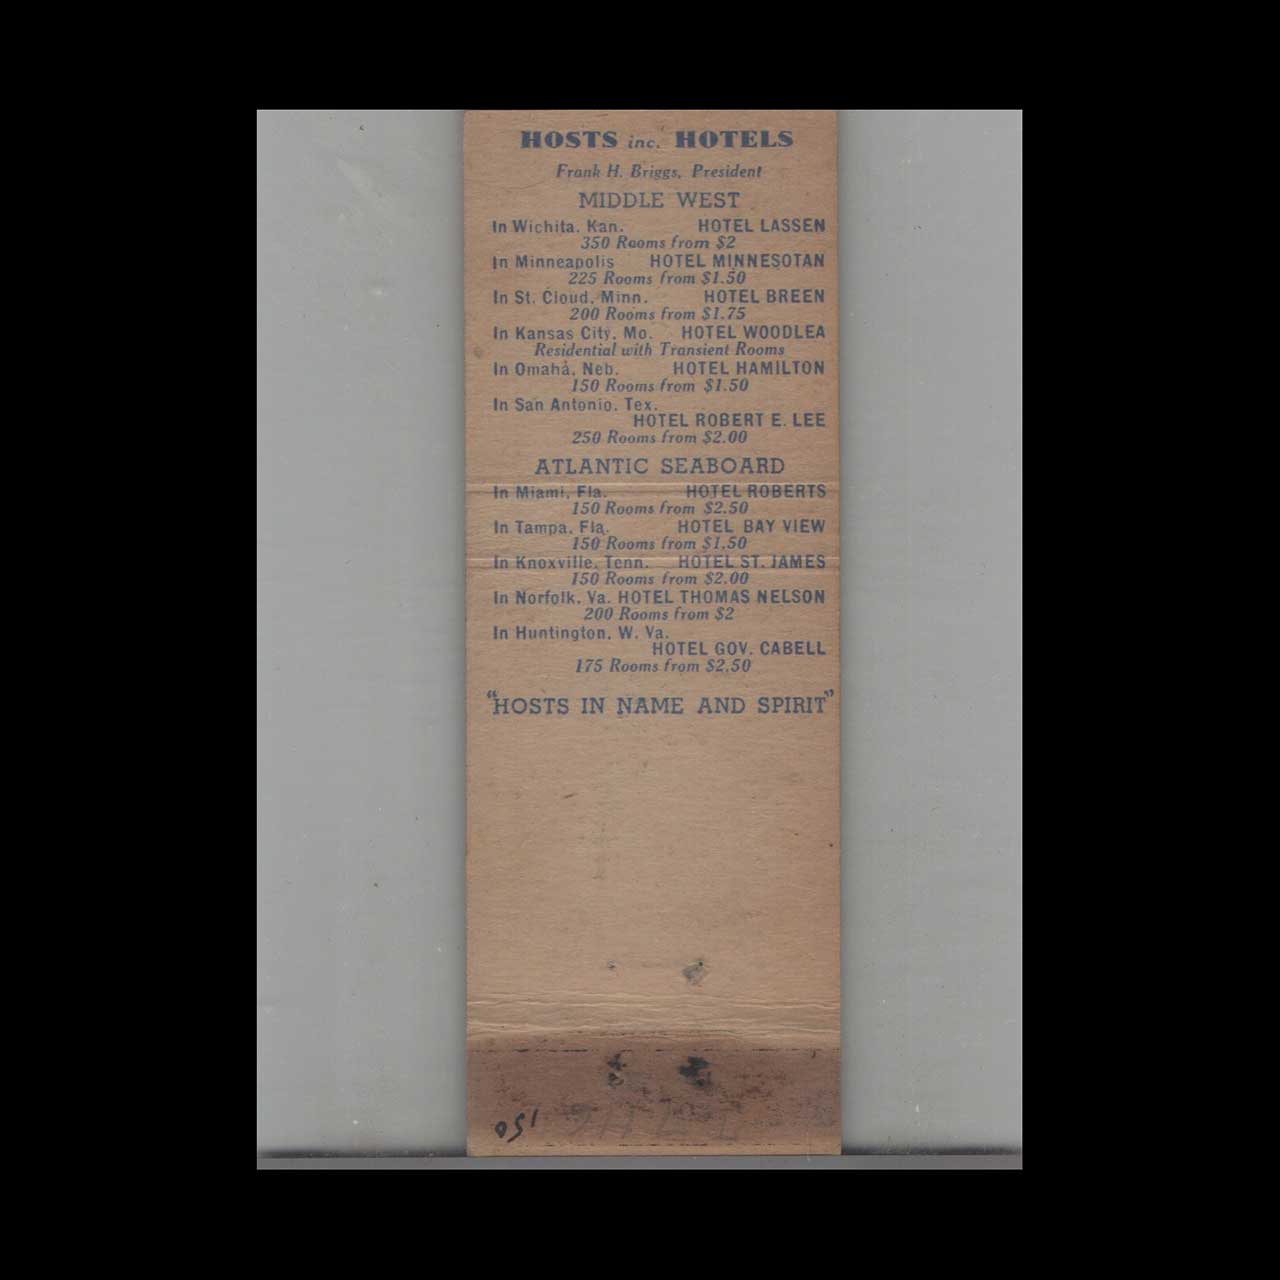 HOSTS inc. HOTELS
Frank H. Briggs, President
MIDDLE WEST
In Wichita, Kan. HOTEL LASSEN
350 Rooms from $2
In Minneapolis HOTEL MINNESOTAN
225 Rooms from $1.50
In St. Cloud, Minn. HOTEL BREEN
200 Rooms from $1.75
In Kansas City, Mo. HOTEL WOODLEA
Residential with Transient Rooms
In Omaha, Neb. HOTEL HAMILTON
150 Rooms from $1.50
In San Antonio, Tex.
HOTEL ROBERT E. LEE
250 Rooms from $2.00
ATLANTIC SEABOARD
In Miami, Fla. HOTEL ROBERTS
150 Rooms from $2.50
In Tampa, Fla. HOTEL BAY VIEW
150 Rooms from $1.50
In Knoxville, Tenn. HOTEL ST. JAMES
150 Rooms from $2.00
In Norfolk, Va. HOTEL THOMAS NELSON
200 Rooms from $2
In Huntington, W. Va.
HOTEL GOV. CABELL
175 Rooms from $2.50
"HOSTS IN NAME AND SPIRIT"
150